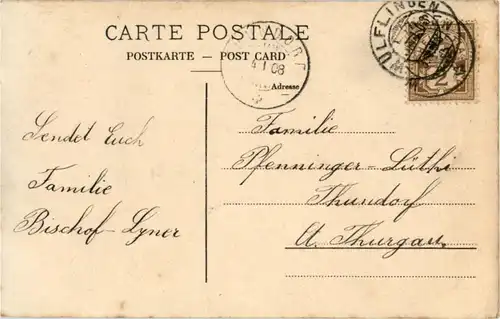 CARTE POSTALE
POSTKARTE – POST CARD
Adresse
WÜLFLINGEN
2
08
Sendet Euch
Familie
Bischof-Lyner
Familie
Pfenninger-Lüthi
Thundorf
Ct. Thurgau.